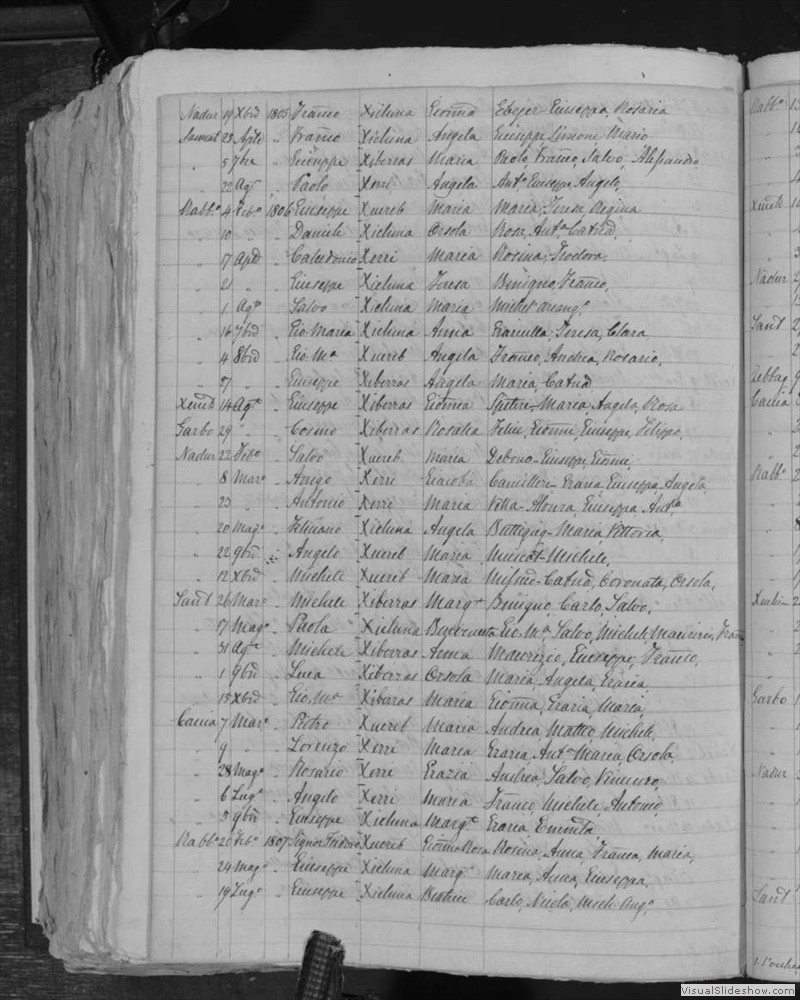 Nadur 19 Xbr̃ 1805 Franco Xicluna Gio͠nna Ebejer - Giuseppa, Rosaria
Sannat 25 Aple " Franco Xicluna Angela Giuseppe Simone Mario
" 5 7bre " Giuseppe Xiberras Maria Paolo, Franco, Salvo, Alessandro
" 22 Agº " Paolo Xerri Angela Antº Giuseppe Angelo,
Rabbº 4 Febº 1806 Giuseppe Xuereb Maria Maria, Teresa, Regina
" 10 " " Daniele Xicluna Orsola Rosa, Antª Catnã
" 17 Aple " Calcedonio Xerri Maria Rosina, Teodora,
" 21 " " Giuseppe Xicluna Teresa Benigno, Franco,
" 1 Agº " Salvo Xicluna Maria Michel'arcangº
" 16 7bre " Gio Maria Xicluna Anna Graziulla, Teresa, Clara
" 4 8bre " Gio Mª Xuereb Angela Franco, Andrea, Rosario,
" 7 " " Giuseppe Xiberras Angela Maria, Catnã
Xeuchª 14 Agº " Giuseppe Xiberras Gio͠nna Spiteri - Maria, Angela, Rosa
Garbo 29 " " Cosmo Xiberras Rosalia Felice, Gio͠nni, Giuseppe, Filippo,
Nadur 22 Febº " Salvo Xuereb Maria Debono - Giuseppe, Gio͠nni,
" 8 Marº " Arrigo Xerri Giacoba Camilleri - Grazia, Giuseppa, Angela,
" 23 " " Antonio Xerri Maria Vella - Aloisa, Giuseppa, Antª
" 20 Magº " Feliciano Xicluna Angela Buttigieg - Maria, Vittoria,
" 22 9bre " Angelo Xuereb Maria Muscat - Michele,
" 12 Xbre " Michele Xuereb Maria Mifsud - Catnã, Coronata, Orsola,
Sant 26 Marº " Michele Xiberras Margª Benigno, Carlo, Salvo,
" 17 Magº " Paola Xicluna Benvenuto Gio Mª Salvo, Michele Maurizio, Franco
" 31 Agº " Michele Xiberras Anna Maurizio, Giuseppe, Franco,
" 1 9bre " Luca Xiberras Orsola Maria, Angela, Grazia,
" 15 Xbre " Gio Mª Xiberras Maria Gio͠nna, Grazia, Maria,
Caccia 7 Marº " Pietro Xuereb Maria Andrea, Matteo, Michele,
" 9 " " Lorenzo Xerri Maria Grazia, Antª Maria, Orsola,
" 28 Magº " Rosario Xerri Grazia Andrea, Salvo, Vincenzo,
" 6 Lugº " Angelo Xerri Maria Franco, Michele, Antonio,
" 5 9bre " Giuseppe Xicluna Margª Grazia,
Rabbº 20 Febº 1807 Signor Xuereb Gio͠nna Rosa Rosina, Anna, Franca, Maria,
" 24 Magº " Giuseppe Xicluna Margª Maria, Anna, Giuseppa,
" 19 Lugº " Giuseppe Xicluna Beatrice Carlo, Nicola, Mich: Angº
Rabbº
Nadur
Sant
Caccia
Rabbº
Garbo
Nadur
Sant
VisualSlideshow.com